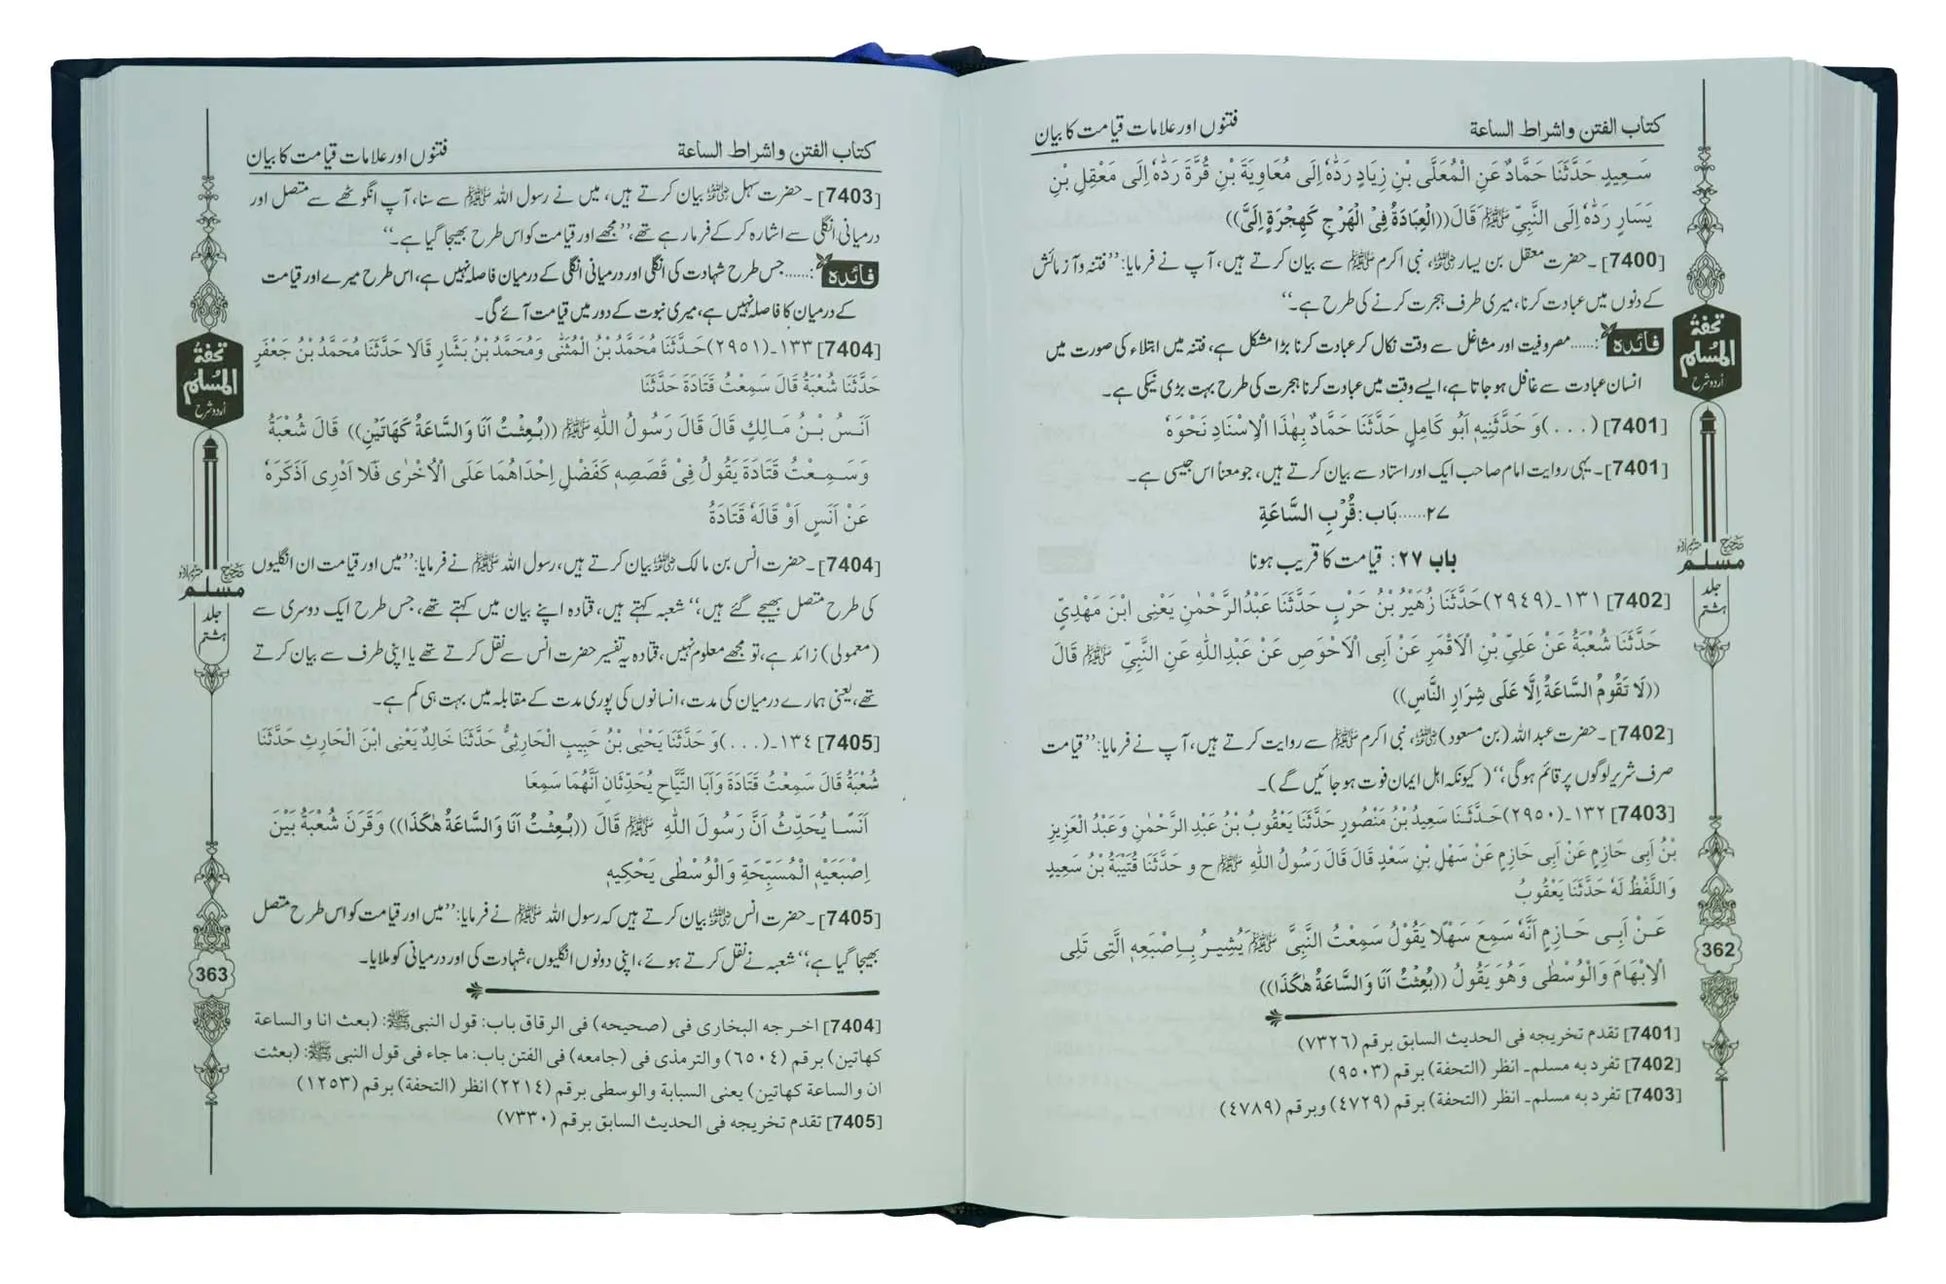 كتاب الفتن واشراط الساعة
فتنوں اور علامات قیامت کا بیان
سَعِيدٍ حَدَّثَنَا حَمَّادٌ عَنِ الْمُعَلَّى بْنِ زِيَادٍ رَدَّهُ إِلَى مُعَاوِيَةَ بْنِ قُرَّةَ رَدَّهُ إِلَى مَعْقِلِ بْنِ
يَسَارٍ رَدَّهُ إِلَى النَّبِيِّ ﷺ قَالَ ((الْعِبَادَةُ فِیْ الْهَرْجِ كَهِجْرَةٍ إِلَیَّ))
[7400]۔ حضرت معقل بن یسار ؓ، نبی اکرم ﷺ سے بیان کرتے ہیں، آپ نے فرمایا: ’’فتنہ و آزمائش
کے دنوں میں عبادت کرنا، میری طرف ہجرت کرنے کی طرح ہے۔‘‘
فائدہ :...... مصروفیت اور مشاغل سے وقت نکال کر عبادت کرنا بڑا مشکل ہے، فتنہ میں ابتلاء کی صورت میں
انسان عبادت سے غافل ہو جاتا ہے، ایسے وقت میں عبادت کرنا ہجرت کی طرح بہت بڑی نیکی ہے۔
[7401] (...) وَ حَدَّثَنِيهِ أَبُو كَامِلٍ حَدَّثَنَا حَمَّادٌ بِهٰذَا الْإِسْنَادِ نَحْوَهُ
[7401]۔ یہی روایت امام صاحب ایک اور استاد سے بیان کرتے ہیں، جو معناً اس جیسی ہے۔
٢٧...... بَاب: قُرْبِ السَّاعَةِ
باب ۲۷: قیامت کا قریب ہونا
[7402] ١٣١۔(٢٩٤٩) حَدَّثَنَا زُهَيْرُ بْنُ حَرْبٍ حَدَّثَنَا عَبْدُالرَّحْمٰنِ يَعْنِى ابْنَ مَهْدِيٍّ
حَدَّثَنَا شُعْبَةُ عَنْ عَلِيِّ بْنِ الْأَقْمَرِ عَنْ أَبِى الْأَحْوَصِ عَنْ عَبْدِاللّٰهِ عَنِ النَّبِيِّ ﷺ قَالَ
((لَا تَقُومُ السَّاعَةُ إِلَّا عَلَى شِرَارِ النَّاسِ))
[7402]۔ حضرت عبد اللہ (بن مسعود) ؓ، نبی اکرم ﷺ سے روایت کرتے ہیں، آپ نے فرمایا: ’’قیامت
صرف شریر لوگوں پر قائم ہوگی،‘‘ (کیونکہ اہل ایمان فوت ہو جائیں گے)۔
[7403] ١٣٢۔(٢٩٥٠) حَدَّثَنَا سَعِيدُ بْنُ مَنْصُورٍ حَدَّثَنَا يَعْقُوبُ بْنُ عَبْدِ الرَّحْمٰنِ وَعَبْدُ الْعَزِيزِ
بْنُ أَبِى حَازِمٍ عَنْ أَبِى حَازِمٍ عَنْ سَهْلِ بْنِ سَعْدٍ قَالَ قَالَ رَسُولُ اللّٰهِ ﷺ ح و حَدَّثَنَا قُتَيْبَةُ بْنُ سَعِيدٍ
وَاللَّفْظُ لَهُ حَدَّثَنَا يَعْقُوبُ
عَنْ أَبِى حَازِمٍ أَنَّهُ سَمِعَ سَهْلًا يَقُوْلُ سَمِعْتُ النَّبِيَّ ﷺ يُشِيرُ بِإِصْبَعِهِ الَّتِى تَلِى
الْإِبْهَامَ وَالْوُسْطٰى وَهُوَ يَقُوْلُ ((بُعِثْتُ أَنَا وَالسَّاعَةُ هٰكَذَا))
[7401] تقدم تخريجه فى الحديث السابق برقم (٧٣٢٦)
[7402] تفرد به مسلم۔ انظر (التحفة) برقم (٩٥٠٣)
[7403] تفرد به مسلم۔ انظر (التحفة) برقم (٤٧٢٩) وبرقم (٤٧٨٩)
تحفة
المسلم
اردو شرح
صحیح
مسلم
جلد
ہشتم
362
كتاب الفتن واشراط الساعة
فتنوں اور علامات قیامت کا بیان
[7403]۔ حضرت سہل ؓ بیان کرتے ہیں، میں نے رسول اللہ ﷺ سے سنا، آپ انگوٹھے سے متصل اور
درمیانی انگلی سے اشارہ کر کے فرما رہے تھے، ’’مجھے اور قیامت کو اس طرح بھیجا گیا ہے۔‘‘
فائدہ :...... جس طرح شہادت کی انگلی اور درمیانی انگلی کے درمیان فاصلہ نہیں ہے، اس طرح میرے اور قیامت
کے درمیان کا فاصلہ نہیں ہے، میری نبوت کے دور میں قیامت آئے گی۔
[7404] ١٣٣۔(٢٩٥١) حَدَّثَنَا مُحَمَّدُ بْنُ الْمُثَنّٰى وَمُحَمَّدُ بْنُ بَشَّارٍ قَالَا حَدَّثَنَا مُحَمَّدُ بْنُ جَعْفَرٍ
حَدَّثَنَا شُعْبَةُ قَالَ سَمِعْتُ قَتَادَةَ حَدَّثَنَا
أَنَسُ بْنُ مَالِكٍ قَالَ قَالَ رَسُولُ اللّٰهِ ﷺ ((بُعِثْتُ أَنَا وَالسَّاعَةُ كَهَاتَيْنِ)) قَالَ شُعْبَةُ
وَسَمِعْتُ قَتَادَةَ يَقُوْلُ فِىْ قَصَصِهِ كَفَضْلِ إِحْدَاهُمَا عَلَى الْأُخْرٰى فَلَا أَدْرِى أَذَكَرَهُ
عَنْ أَنَسٍ أَوْ قَالَهُ قَتَادَةُ
[7404]۔ حضرت انس بن مالک ؓ بیان کرتے ہیں، رسول اللہ ﷺ نے فرمایا: ’’میں اور قیامت ان انگلیوں
کی طرح متصل بھیجے گئے ہیں،‘‘ شعبہ کہتے ہیں، قتادہ اپنے بیان میں کہتے تھے، جس طرح ایک دوسری سے
(معمولی) زائد ہے، تو مجھے معلوم نہیں، قتادہ یہ تفسیر حضرت انس سے نقل کرتے تھے یا اپنی طرف سے بیان کرتے
تھے، یعنی ہمارے درمیان کی مدت، انسانوں کی پوری مدت کے مقابلہ میں بہت ہی کم ہے۔
[7405] ١٣٤۔(...) وَ حَدَّثَنَا يَحْيٰى بْنُ حَبِيبٍ الْحَارِثِيُّ حَدَّثَنَا خَالِدٌ يَعْنِى ابْنَ الْحَارِثِ حَدَّثَنَا
شُعْبَةُ قَالَ سَمِعْتُ قَتَادَةَ وَأَبَا التَّيَّاحِ يُحَدِّثَانِ أَنَّهُمَا سَمِعَا
أَنَسًا يُحَدِّثُ أَنَّ رَسُولَ اللّٰهِ ﷺ قَالَ ((بُعِثْتُ أَنَا وَالسَّاعَةُ هٰكَذَا)) وَقَرَنَ شُعْبَةُ بَيْنَ
إِصْبَعَيْهِ الْمُسَبِّحَةِ وَالْوُسْطٰى يَحْكِيهِ
[7405]۔ حضرت انس ؓ بیان کرتے ہیں کہ رسول اللہ ﷺ نے فرمایا: ’’میں اور قیامت کو اس طرح متصل
بھیجا گیا ہے،‘‘ شعبہ نے نقل کرتے ہوئے، اپنی دونوں انگلیوں، شہادت کی اور درمیانی کو ملایا۔
[7404] اخرجه البخارى فى (صحيحه) فى الرقاق باب: قول النبى ﷺ: (بعثت انا والساعة
كهاتين) برقم (٦٥٠٤) والترمذى فى (جامعه) فى الفتن باب: ما جاء فى قول النبى ﷺ: (بعثت
ان والساعة كهاتين) يعنى السبابة والوسطى برقم (٢٢١٤) انظر (التحفة) برقم (١٢٥٣)
[7405] تقدم تخريجه فى الحديث السابق برقم (٧٣٣٠)
تحفة
المسلم
اردو شرح
صحیح
مسلم
جلد
ہشتم
363